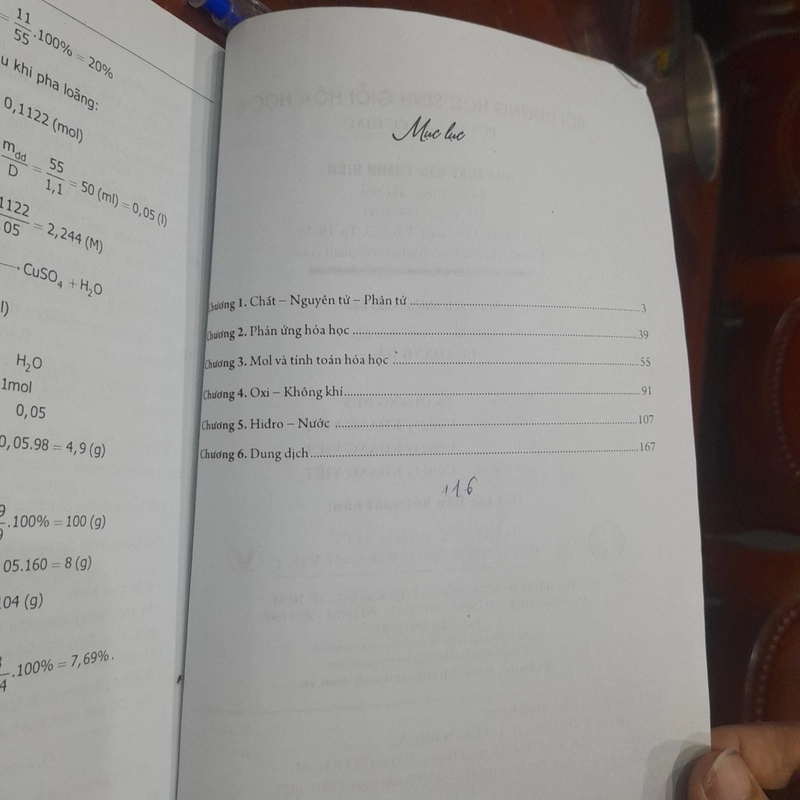 = 11/55 .100% = 20%
u khi pha loãng:
0,1122 (mol)
m_dd/D = 55/1,1 = 50 (ml) = 0,05 (l)
1122/05 = 2,244 (M)
→ CuSO₄ + H₂O
l)
H₂O
1mol
0,05
0,05.98 = 4,9 (g)
.100% = 100 (g)
05.160 = 8 (g)
104 (g)
.100% = 7,69%.
Mục lục
Chương 1. Chất – Nguyên tử – Phân tử ........ 3
Chương 2. Phản ứng hóa học ........ 39
Chương 3. Mol và tính toán hóa học ........ 55
Chương 4. Oxi – Không khí ........ 91
Chương 5. Hiđro – Nước ........ 107
Chương 6. Dung dịch ........ 167
116